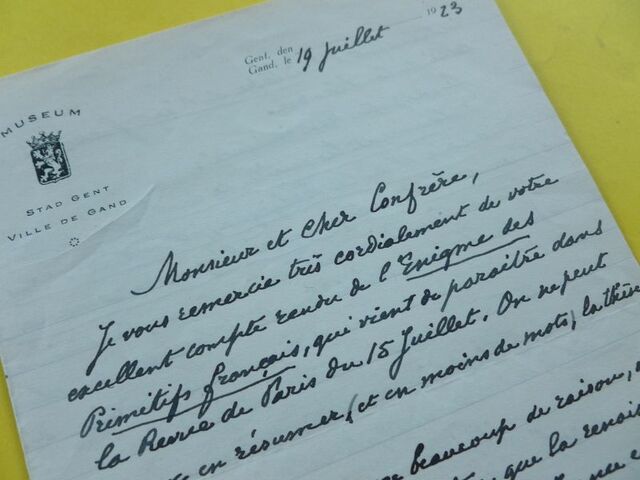 MUSEUM
STAD GENT
VILLE DE GAND
Gent, den
Gand, le 19 Juillet 1923
Monsieur et Cher Confrère,
Je vous remercie très cordialement de votre
excellent compte rendu de l'Enigme des
Primitifs français, qui vient de paraître dans
la Revue de Paris du 15 Juillet. On ne peut
en résumer, et en moins de mots, la
beaucoup de raison,
que la